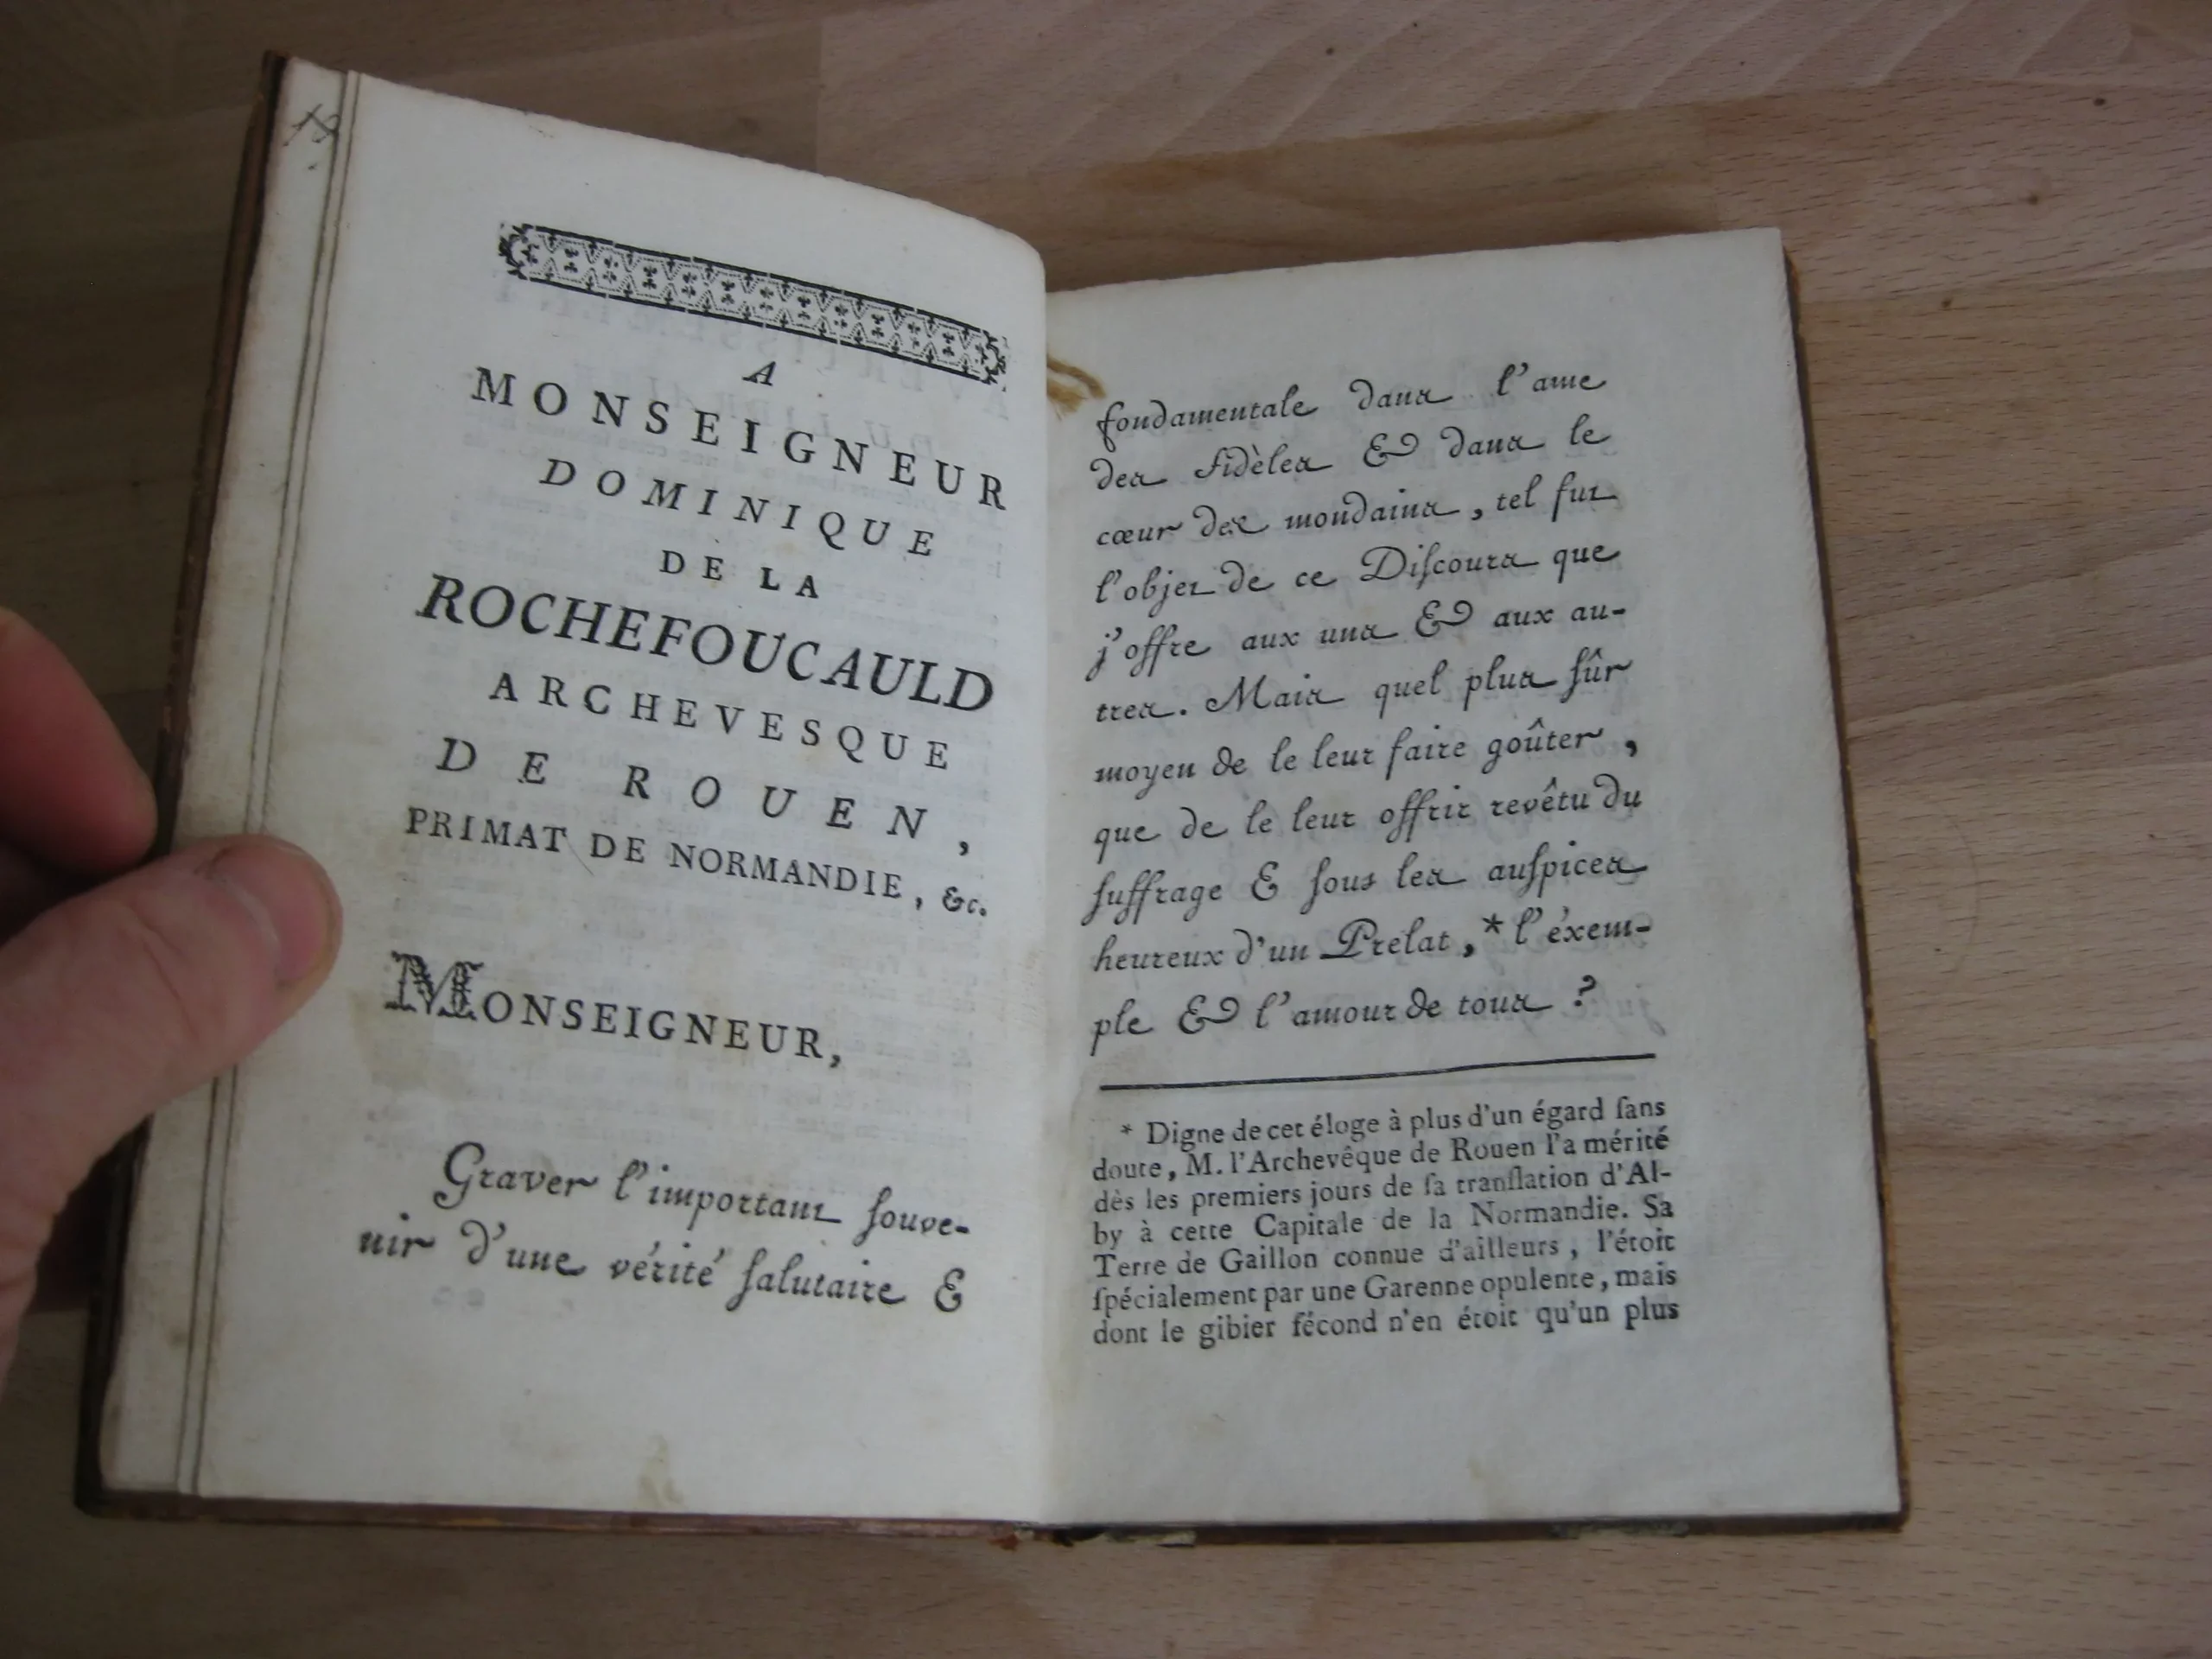 A
MONSEIGNEUR
DOMINIQUE
DE LA
ROCHEFOUCAULD
ARCHEVESQUE
DE ROUEN,
PRIMAT DE NORMANDIE, &c.
MONSEIGNEUR,
Graver l'important ſouve-
nir d'une vérité ſalutaire &
fondamentale dans l'ame
des Fidèles & dans le
cœur des mondains, tel fut
l'objet de ce Diſcours que
j'offre aux uns & aux au-
tres. Mais quel plus ſûr
moyen de le leur faire goûter,
que de le leur offrir revêtu du
ſuffrage & ſous les auſpices
heureux d'un Prélat, * l'éxem-
ple & l'amour de tous ?
* Digne de cet éloge à plus d'un égard ſans
doute, M. l'Archevêque de Rouen l'a mérité
dès les premiers jours de ſa tranſlation d'Al-
by à cette Capitale de la Normandie. Sa
Terre de Gaillon connue d'ailleurs, l'étoit
ſpécialement par une Garenne opulente, mais
dont le gibier fécond n'en étoit qu'un plus